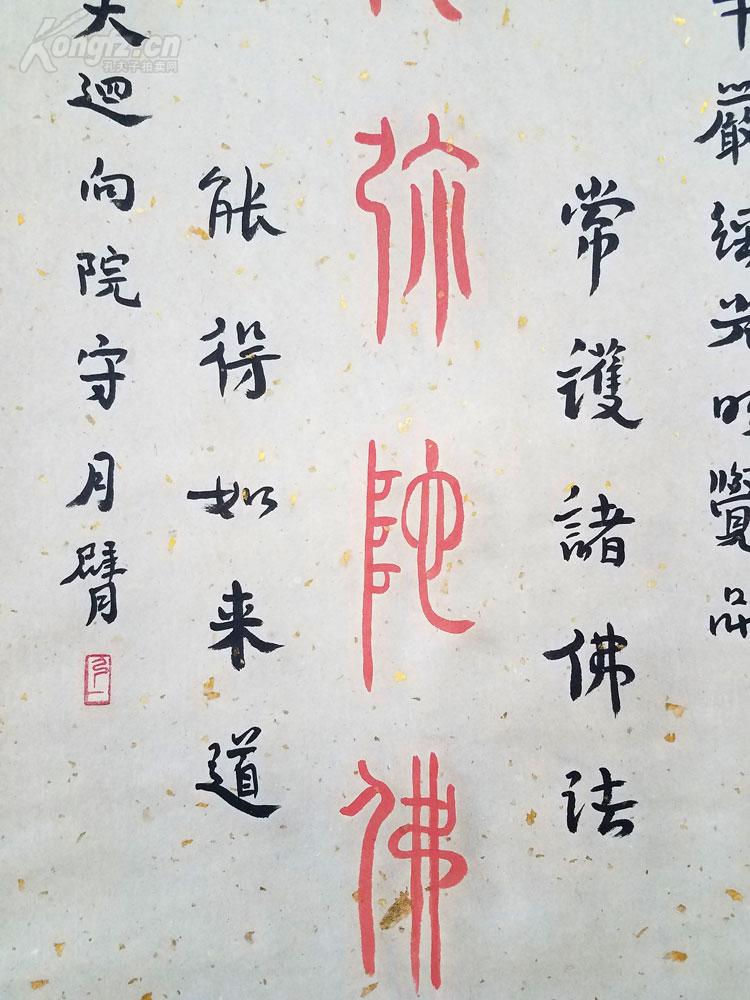 嚴經光明覺品
常護諸佛法
弥陀佛
能得如来道
迴向院守月臂
Kongfz.cn
孔夫子拍卖网